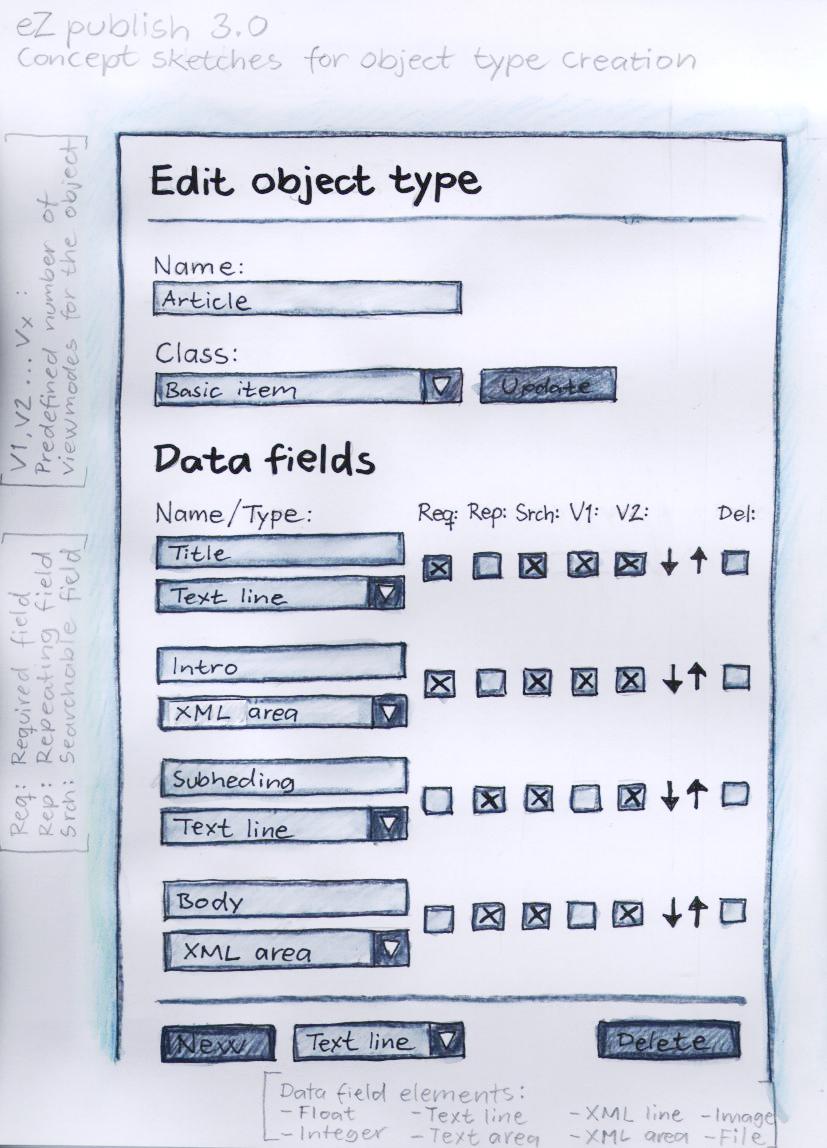 eZ publish 3.0
Concept sketches for object type creation
V1, V2 ... Vx :
Predefined number of
viewmodes for the object
Req: Required field
Rep: Repeating field
Srch: Searchable field
Edit object type
Name:
Article
Class:
Basic item
Update
Data fields
Name/Type: Req: Rep: Srch: V1: V2: Del:
Title
Text line
Intro
XML area
Subheding
Text line
Body
XML area
New Text line Delete
Data field elements:
-Float -Text line -XML line -Image
-Integer -Text area -XML area -File